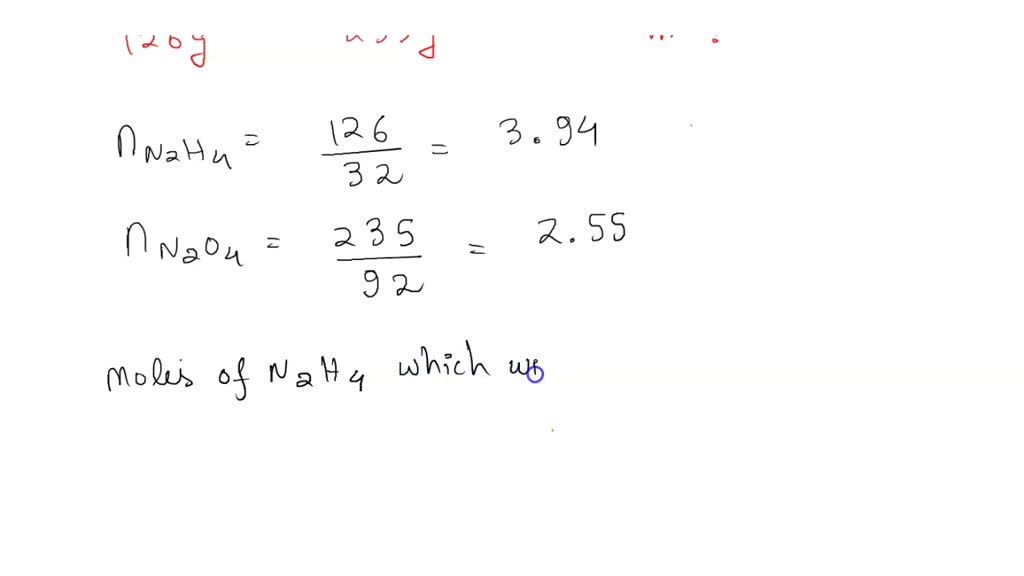 n N2H4 = 126/32 = 3.94
n N2O4 = 235/92 = 2.55
moles of N2H4 which